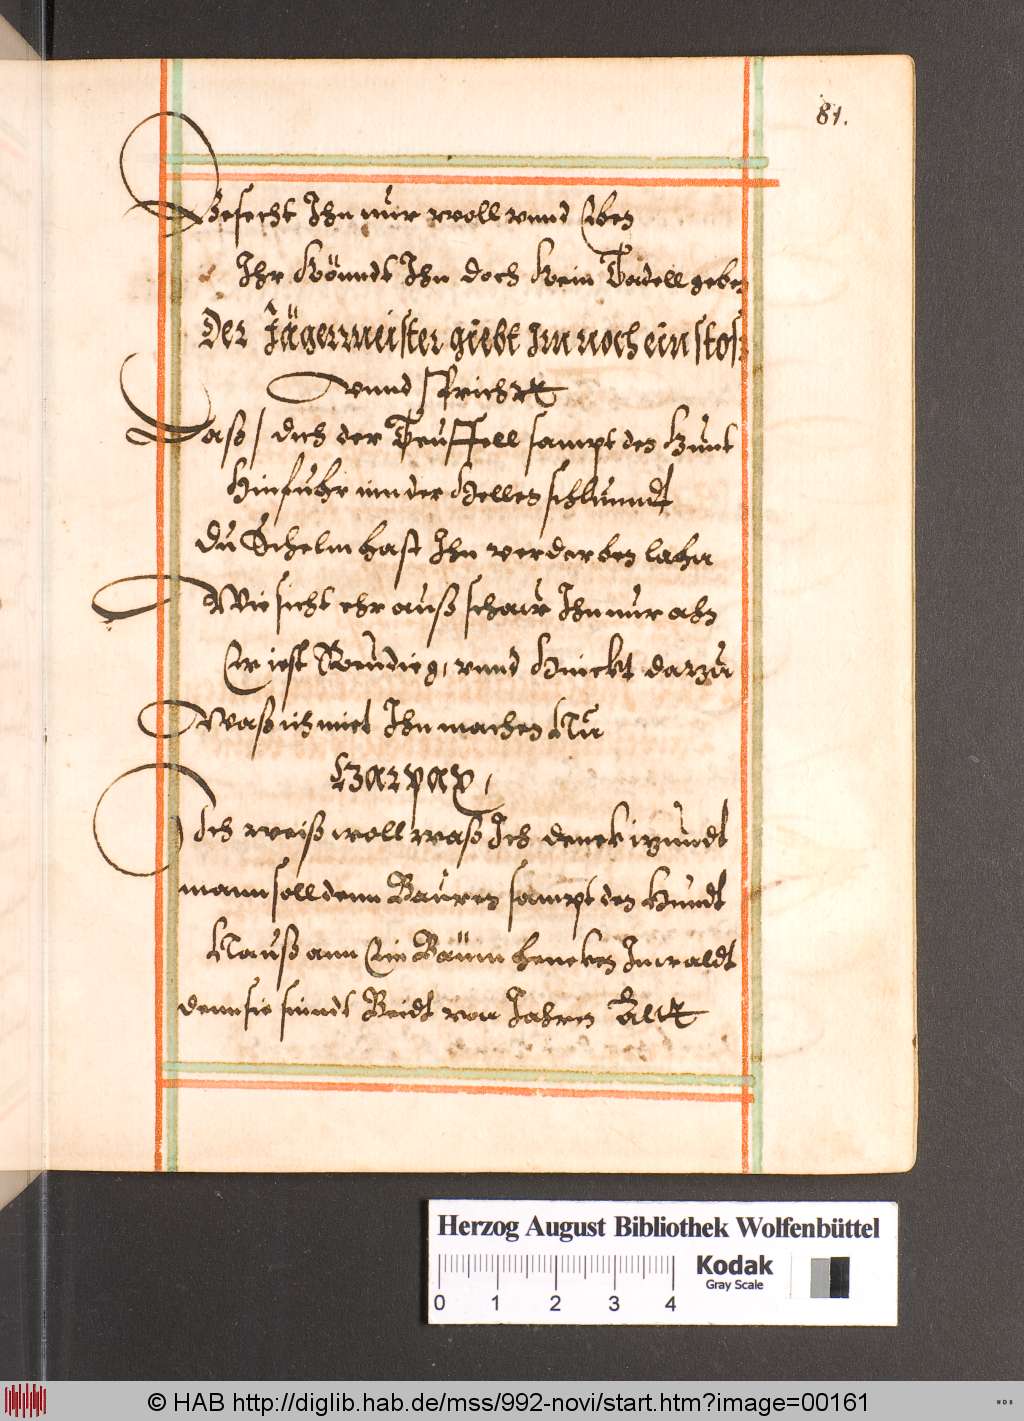 81.
Besecht Ihn nur woll vnnd Eben
Ihr Könndt Ihn doch kein Tadell geben
Der Jägermeister giebt Im noch ein stos
vnnd sprichtt
Daß / dich der Teuffell sampt den Hunt
Hinfuhr inn der Hellen schlunndt
Du Schelm hast Ihn verderben lahn
Wie sicht ehr auß schaw Ihn nur ahn
Er iest Reudieg, vnnd Hinckt darzu
Waß ich miet Ihn machen Nu
Harpax,
Ich weiß woll waß Ich denck izundt
mann soll denn Bauren sampt den Hundt
Nauß ann Ein Baum hencken Im waldt
denn sie sindt Beidt von Jahren Altt
Herzog August Bibliothek Wolfenbüttel
Kodak
Gray Scale
0 1 2 3 4
© HAB http://diglib.hab.de/mss/992-novi/start.htm?image=00161